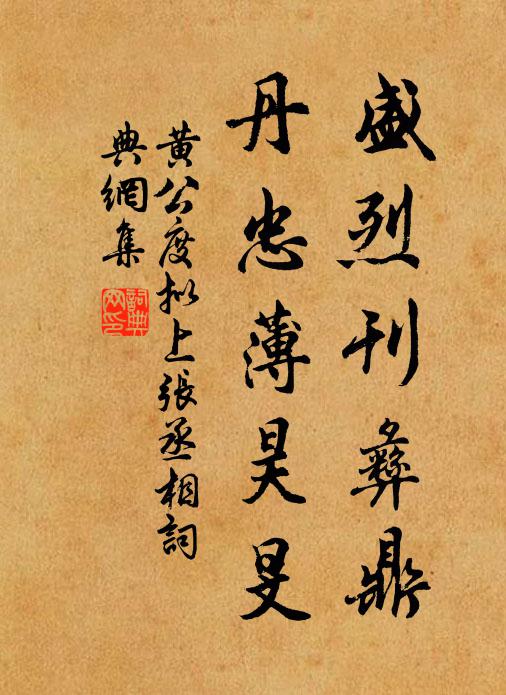 盛烈刊彝鼎
丹忠薄昊旻
黄公度拟上張丞相詞
典網集
詞典
网印